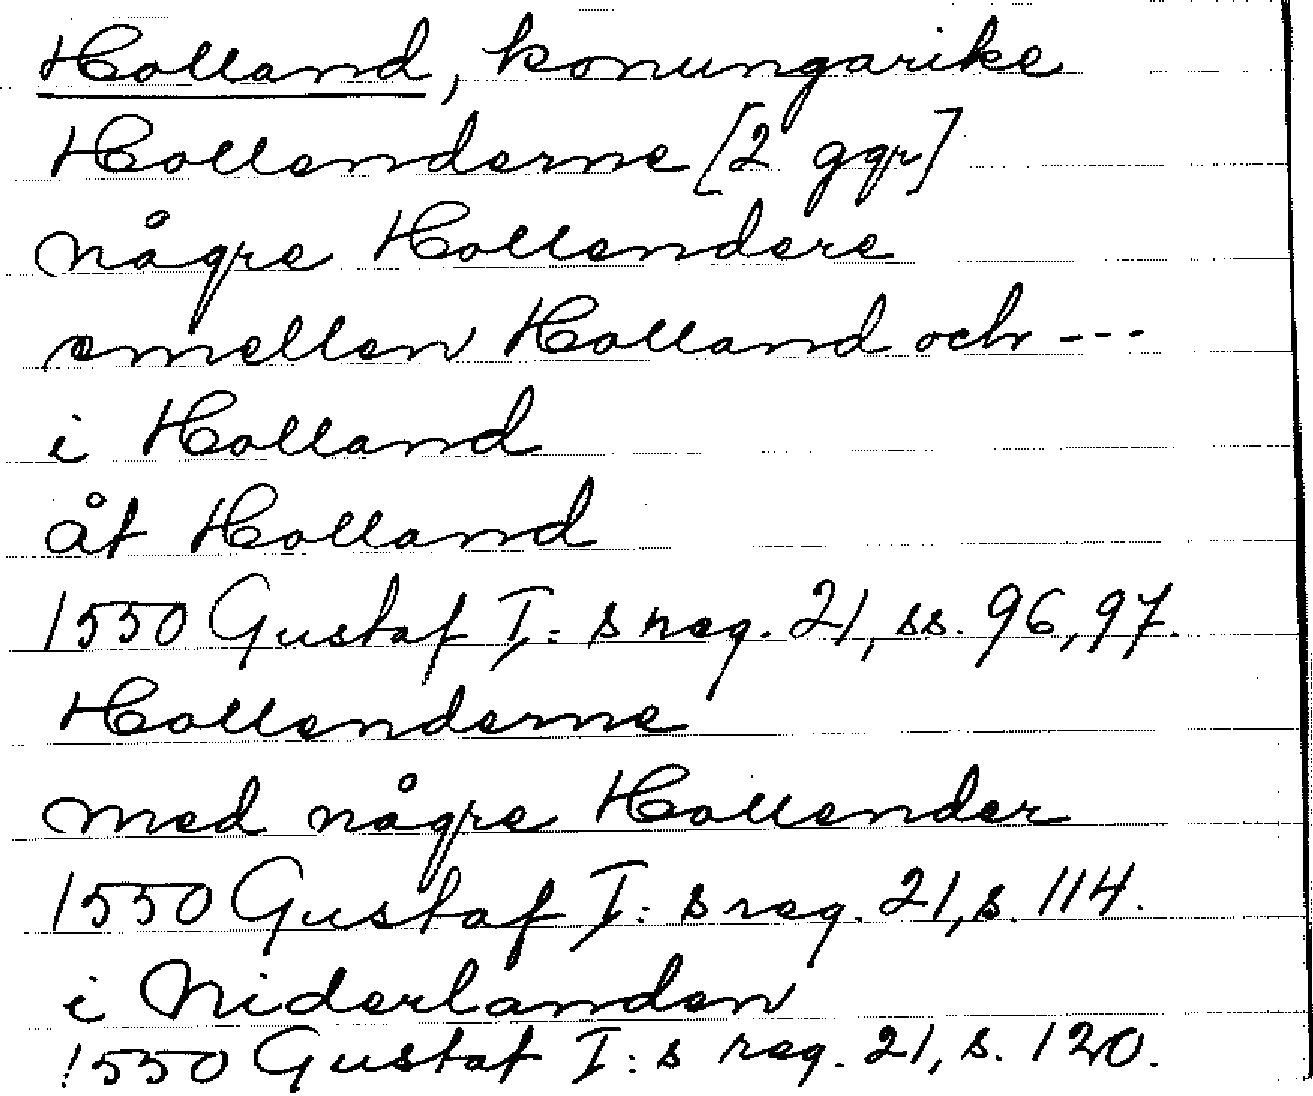 Holland, konungarike
Hollenderne [2 ggr]
någre Hollendere
emellen Holland och ---
i Holland
åt Holland
1550 Gustaf I:s reg. 21, ss. 96, 97.
Hollenderne
med någre Hollender
1550 Gustaf I:s reg. 21, s. 114.
i Niderlanden
1550 Gustaf I:s reg. 21, s. 120.